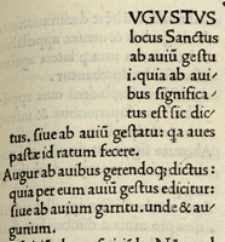 VGVSTVS
locus Sanctus
ab auiū gestu
i. quia ab aui-
bus significa-
tus est sic dic
tus. siue ab auiū gestatu: qa aues
pastæ id ratum fecere.
Augur ab auibus gerendoq; dictus:
quia per eum auiū gestus edicitur:
siue ab auium garritu. unde & au-
gurium.